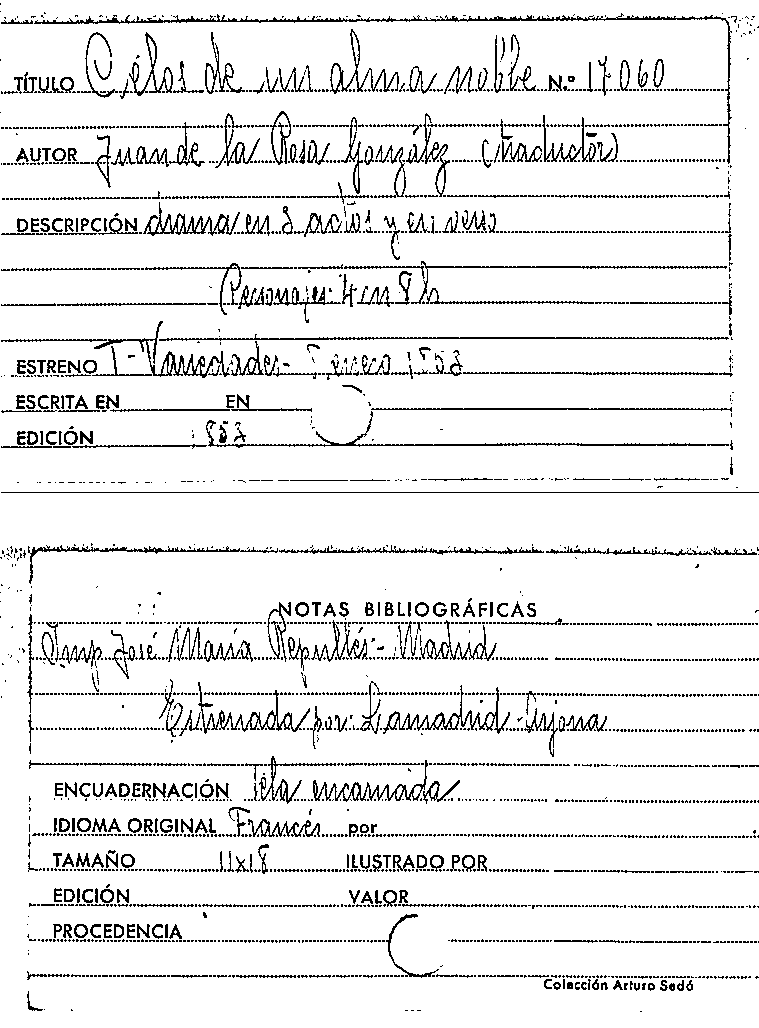 TÍTULO Celos de un alma noble N.º 17060
AUTOR Juan de la Rosa González (traductor)
DESCRIPCIÓN drama en 3 actos y en verso
Personajes: 4 en 8 h
ESTRENO T-Variedades- enero 1853
ESCRITA EN EN
EDICIÓN 1853
NOTAS BIBLIOGRÁFICAS
Imp José María Repullés- Madrid
Estrenada por: Lamadrid-Arjona
ENCUADERNACIÓN tela encarnada
IDIOMA ORIGINAL Francés por
TAMAÑO 11x18 ILUSTRADO POR
EDICIÓN VALOR
PROCEDENCIA
Colección Arturo Sedó